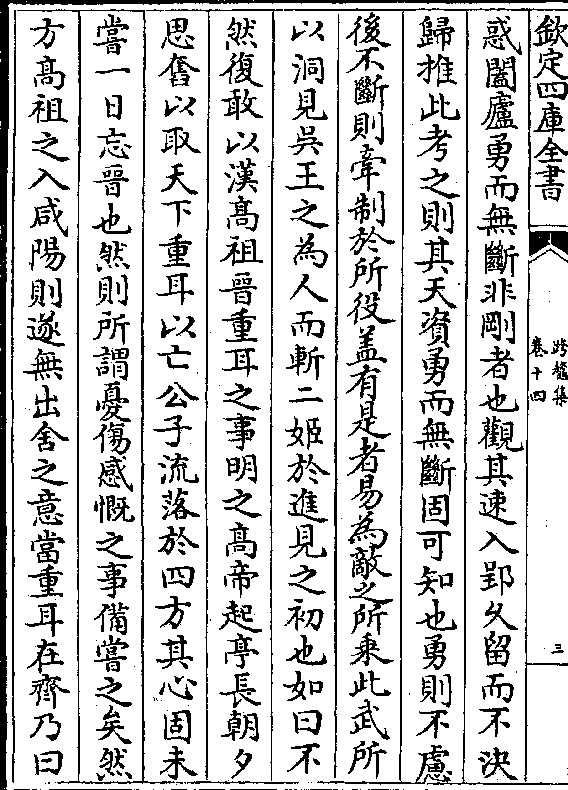 欽定四庫全書
跨鼇集
卷十四
三
惑闔廬勇而無斷非剛者也觀其速入郢久留而不決
歸推此考之則其天資勇而無斷固可知也勇則不慮
後不斷則牽制於所役盖有是者易為敵之所乘此武所
以洞見吳王之為人而斬二姬於進見之初也如曰不
然復敢以漢髙祖晉重耳之事明之髙帝起亭長朝夕
思奮以取天下重耳以亡公子流落於四方其心固未
嘗一日忘晉也然則所謂憂傷感慨之事備嘗之矣然
方髙祖之入咸陽則遂無出舍之意當重耳在齊乃曰